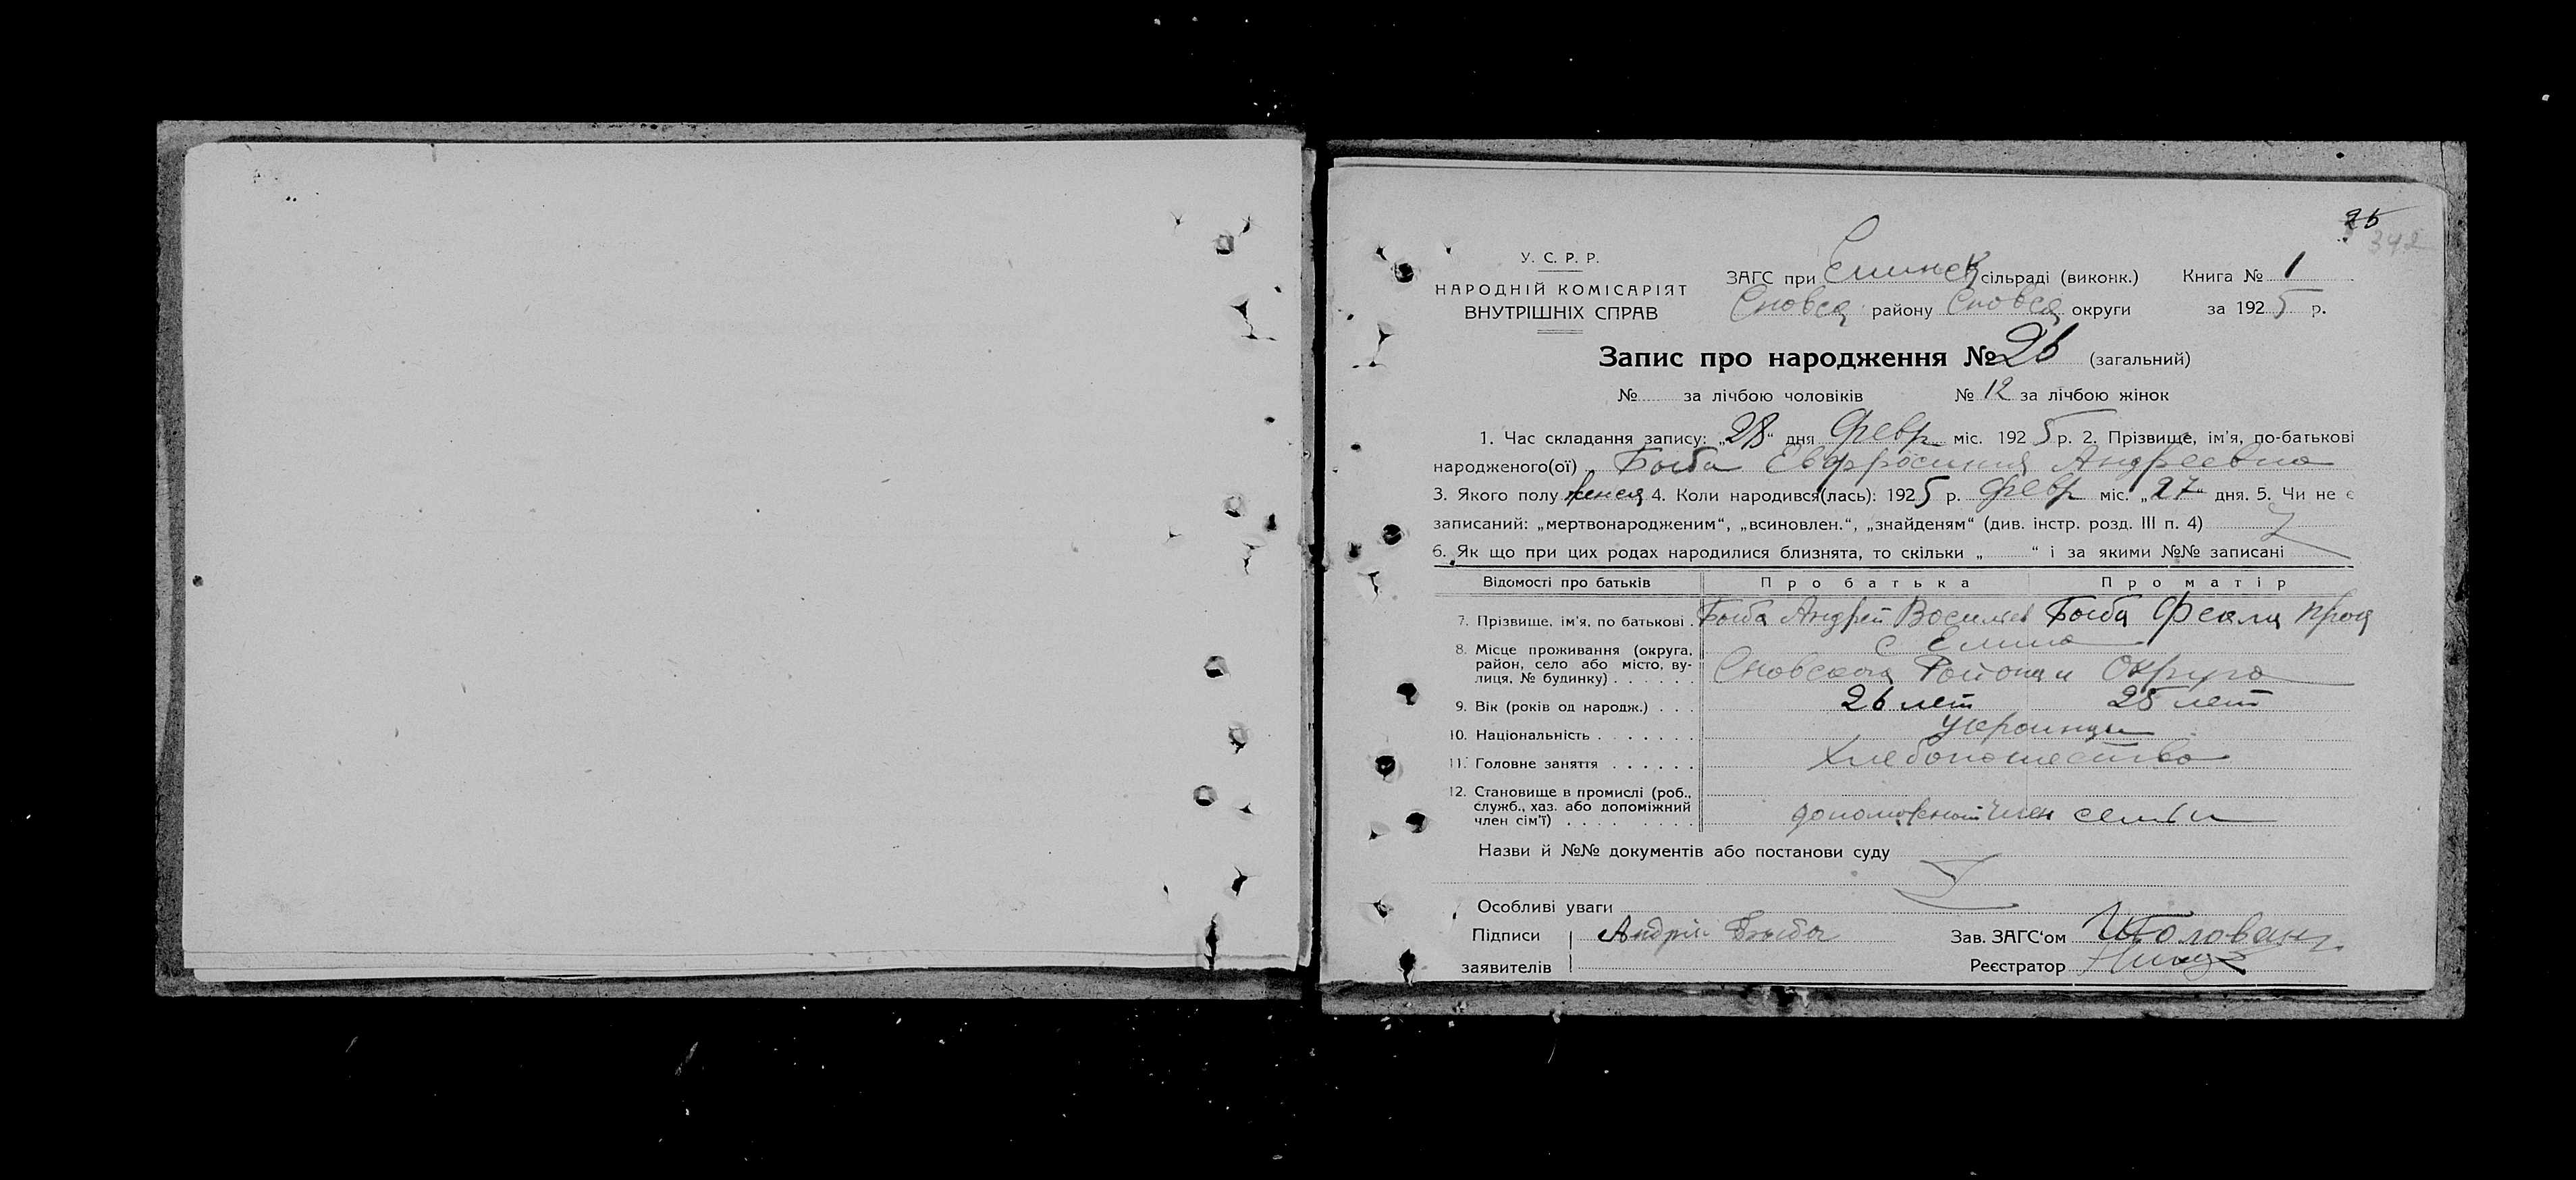 26
342
У. С. Р. Р.
НАРОДНІЙ КОМІСАРІЯТ
ВНУТРІШНІХ СПРАВ
ЗАГС при Елинск сільраді (виконк.) Книга № 1
Сновск району Сновск округи за 1925 р.
Запис про народження № 26 (загальний)
№ за лічбою чоловіків № 12 за лічбою жінок
1. Час складання запису: „28“ дня Февр міс. 1925 р. 2. Прізвище, ім'я, по-батькові
народженого(ої) Быба Евфросиния Андреевна
3. Якого полу женск 4. Коли народився(лась): 1925 р. Февр міс. „27“ дня. 5. Чи не є
записаний: „мертвонародженим“, „всиновлен.“, „знайденям“ (див. інстр. розд. III п. 4)
6. Як що при цих родах народилися близнята, то скільки „ “ і за якими №№ записані
Відомості про батьків Про батька Про матір
7. Прізвище, ім'я, по батькові . Быба Андрей Васильев Быба Фекла
8. Місце проживання (округа, район, село або місто, вулиця, № будинку) . . . . . . с Елино
Сновского Района и Округа
9. Вік (років од народж.) . . . 26 лет 25 лет
10. Національність . . . . . . . украинцы
11. Головне заняття . . . . . . Хлебопашество
12. Становище в промислі (роб., служб., хаз. або допоміжний член сім'ї) . . . . . . . . член семьи
Назви й №№ документів або постанови суду
Особливі уваги
Підписи Андрій Быба Зав. ЗАГС‘ом
заявителів Реєстратор